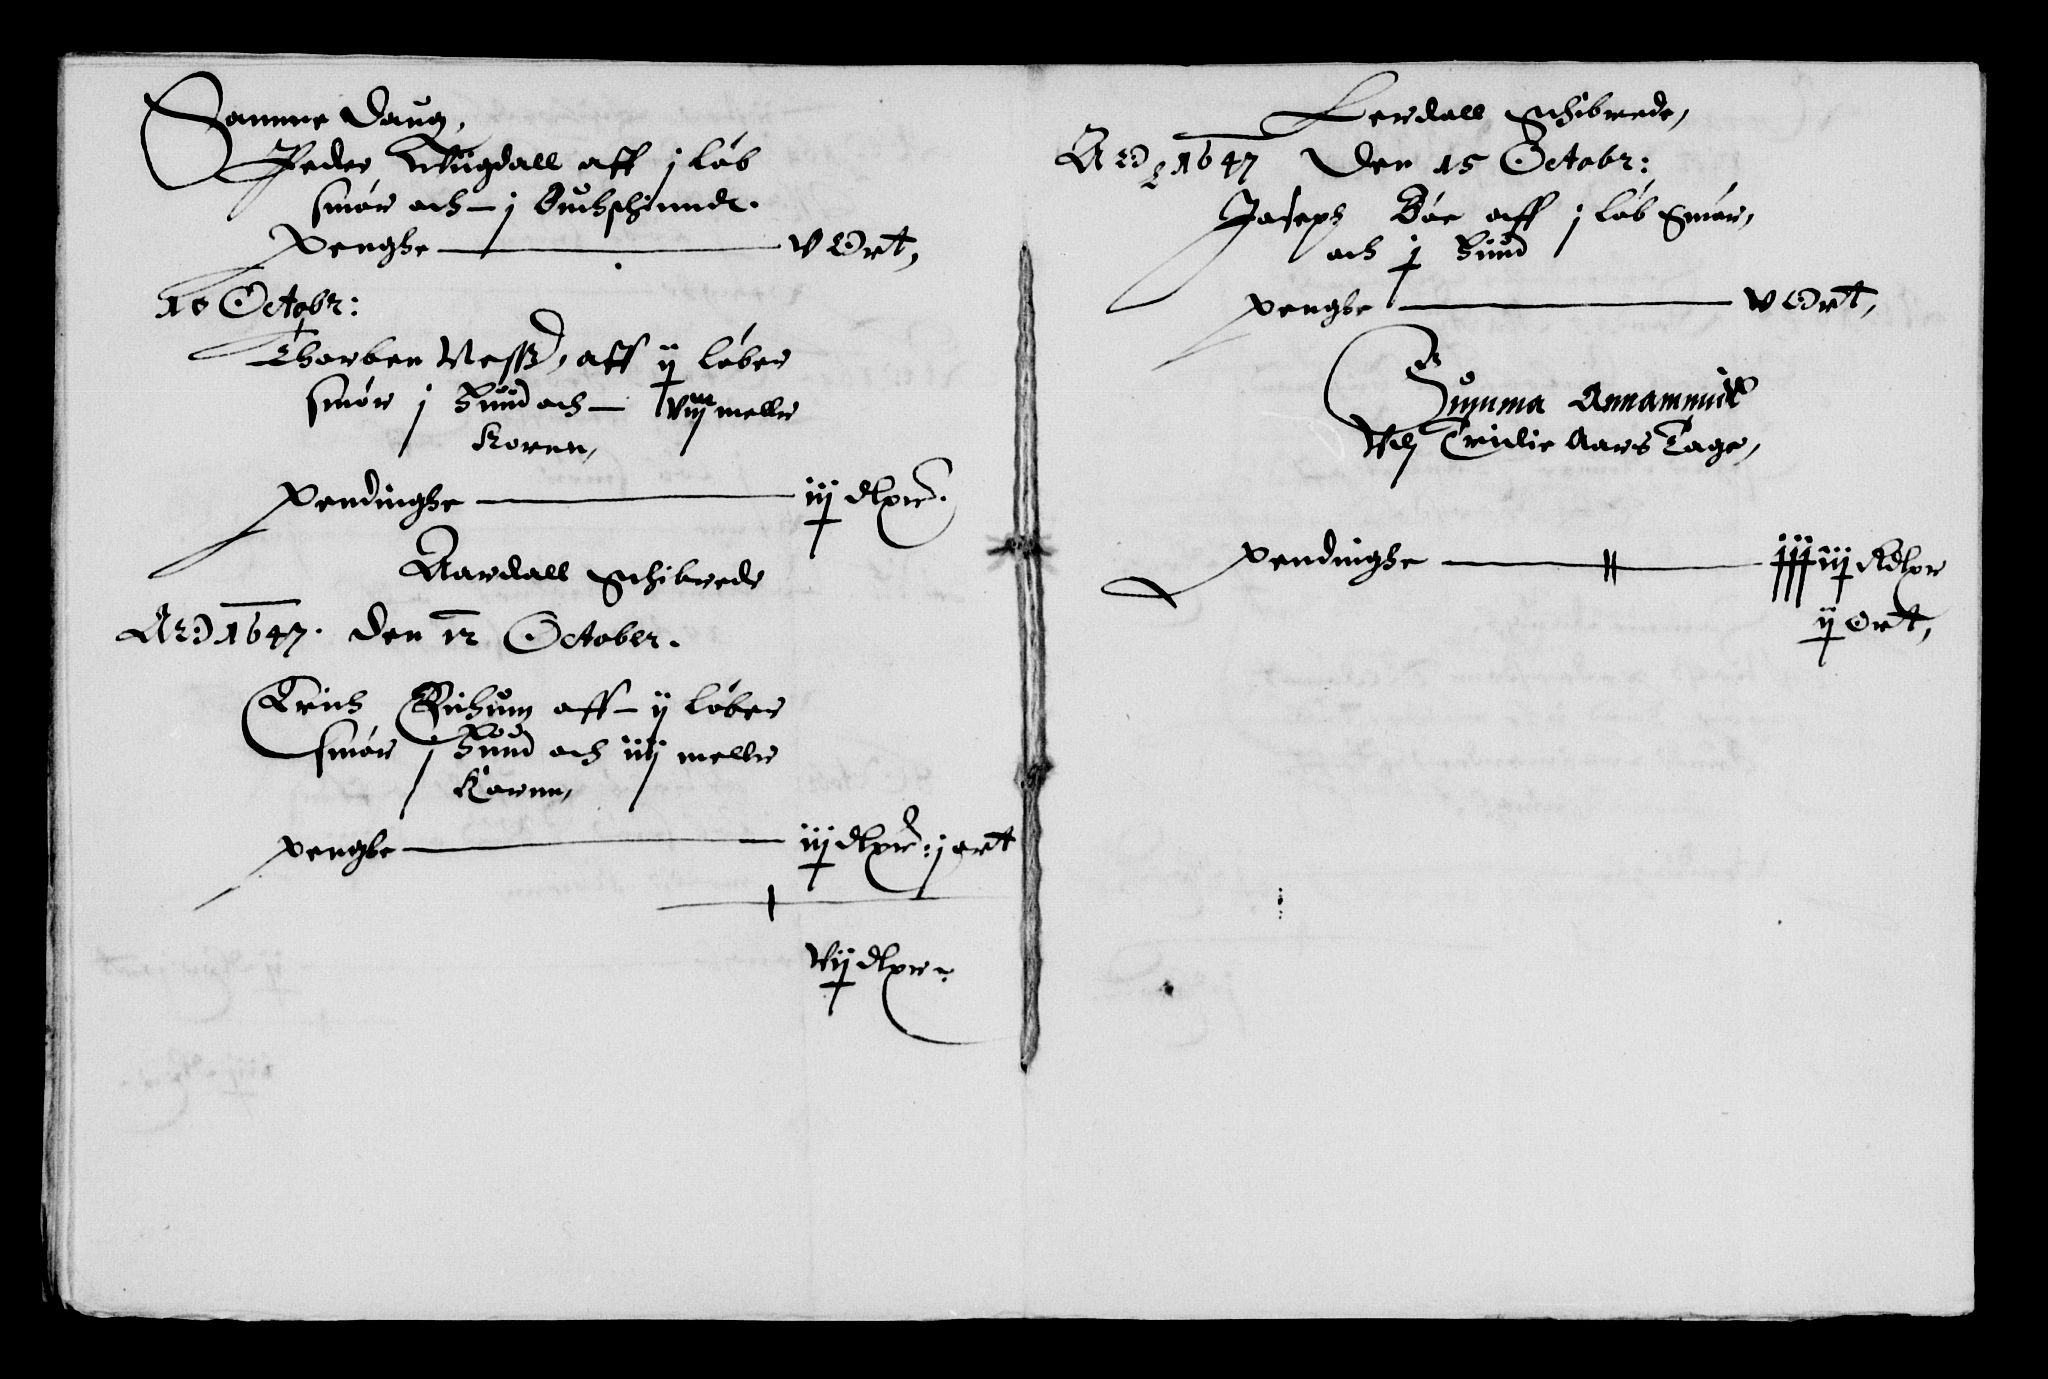 Samme Daug,
Peder Kliugdall aff j løb
smør och – j Buchschinndt.
Penghe — v Ort,
10 Octobr:
Thorben Ness, aff ij løber
smør j Hund och – viij meller
Korenn,
Pendinghe — iij dlr.
Aardall Schibrede
Ao 1647. den 12 October.
Erich Gihum aff – ij løber
smør j Hud och iiij meller
Kornn,
penghe — iij dlr: j ort
vij dlr.
Lerdall Schibrede,
Ao 1647 Den 15 Octobr:
Joseph Bøe aff j løb Smør,
och j Hund
penghe — v Ort,
Summa Annammit
Vdj Tridie Aars Tage,
pendinghe — iij Rdlr
ij ort,